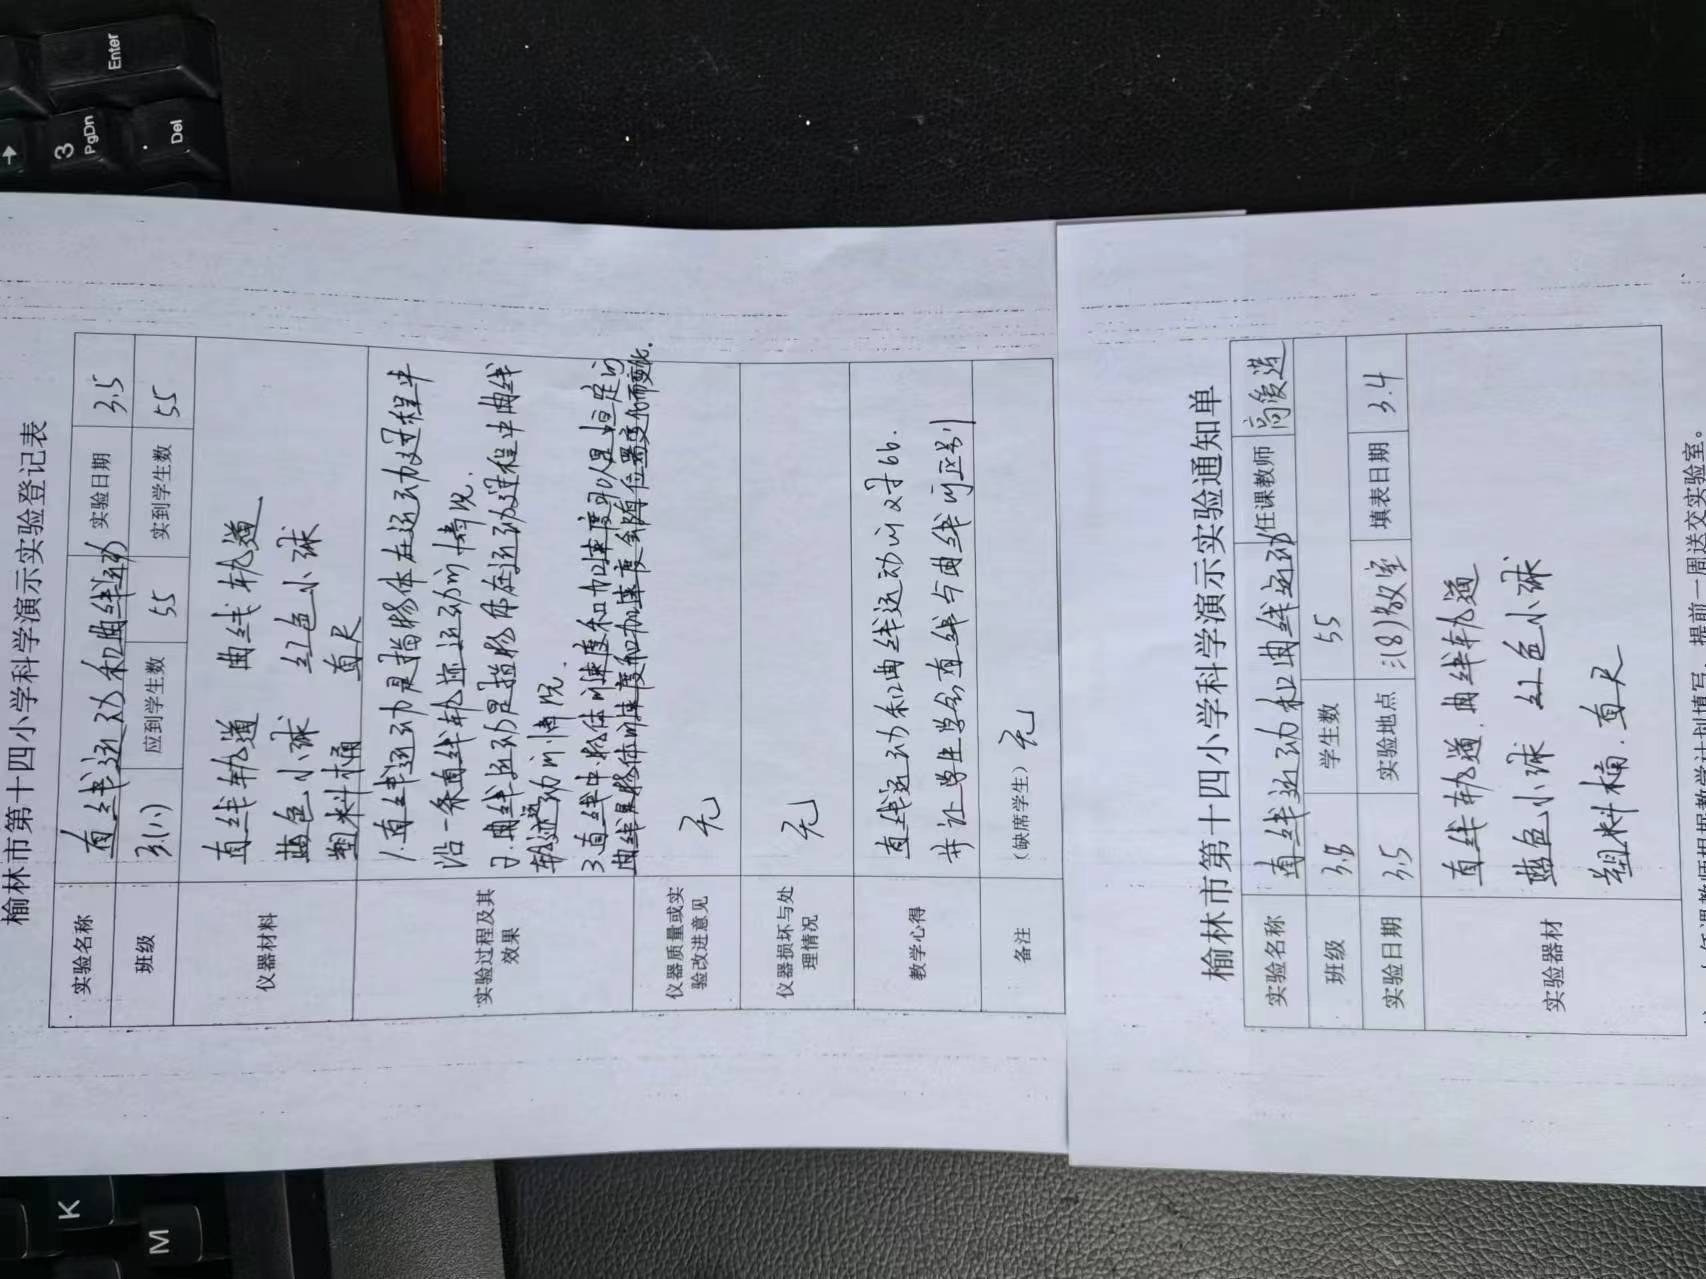 榆林市第十四小学科学演示实验登记表
实验名称 直线运动和曲线运动 实验日期 3.5
班级 3(八) 应到学生数 55 实到学生数 55
仪器材料
直线轨道 曲线轨道
蓝色小球 红色小球
塑料桶 直尺
实验过程及其效果
1.直线运动是指物体在运动过程中
沿一条直线轨迹运动的情况.
2.曲线运动是指物体在运动过程中曲线
轨迹运动的情况.
3.直线中物体的速度和加速度可以是恒定的
曲线是物体的速度和加速度会随位置变化而变化.
仪器质量或实验改进意见 无
仪器损坏与处理情况 无
教学心得
直线运动和曲线运动的对比.
并让学生学会直线与曲线的区别
备注 (缺席学生) 无
榆林市第十四小学科学演示实验通知单
实验名称 直线运动和曲线运动 任课教师
班级 3.8 学生数 55
实验日期 3.5 实验地点 三(8)教室 填表日期 3.4
实验器材
直线轨道.曲线轨道
蓝色小球 红色小球
塑料桶.直尺
任课教师根据教学计划填写，提前一周送交实验室。
Enter
3
PgDn
.
Del
K
M